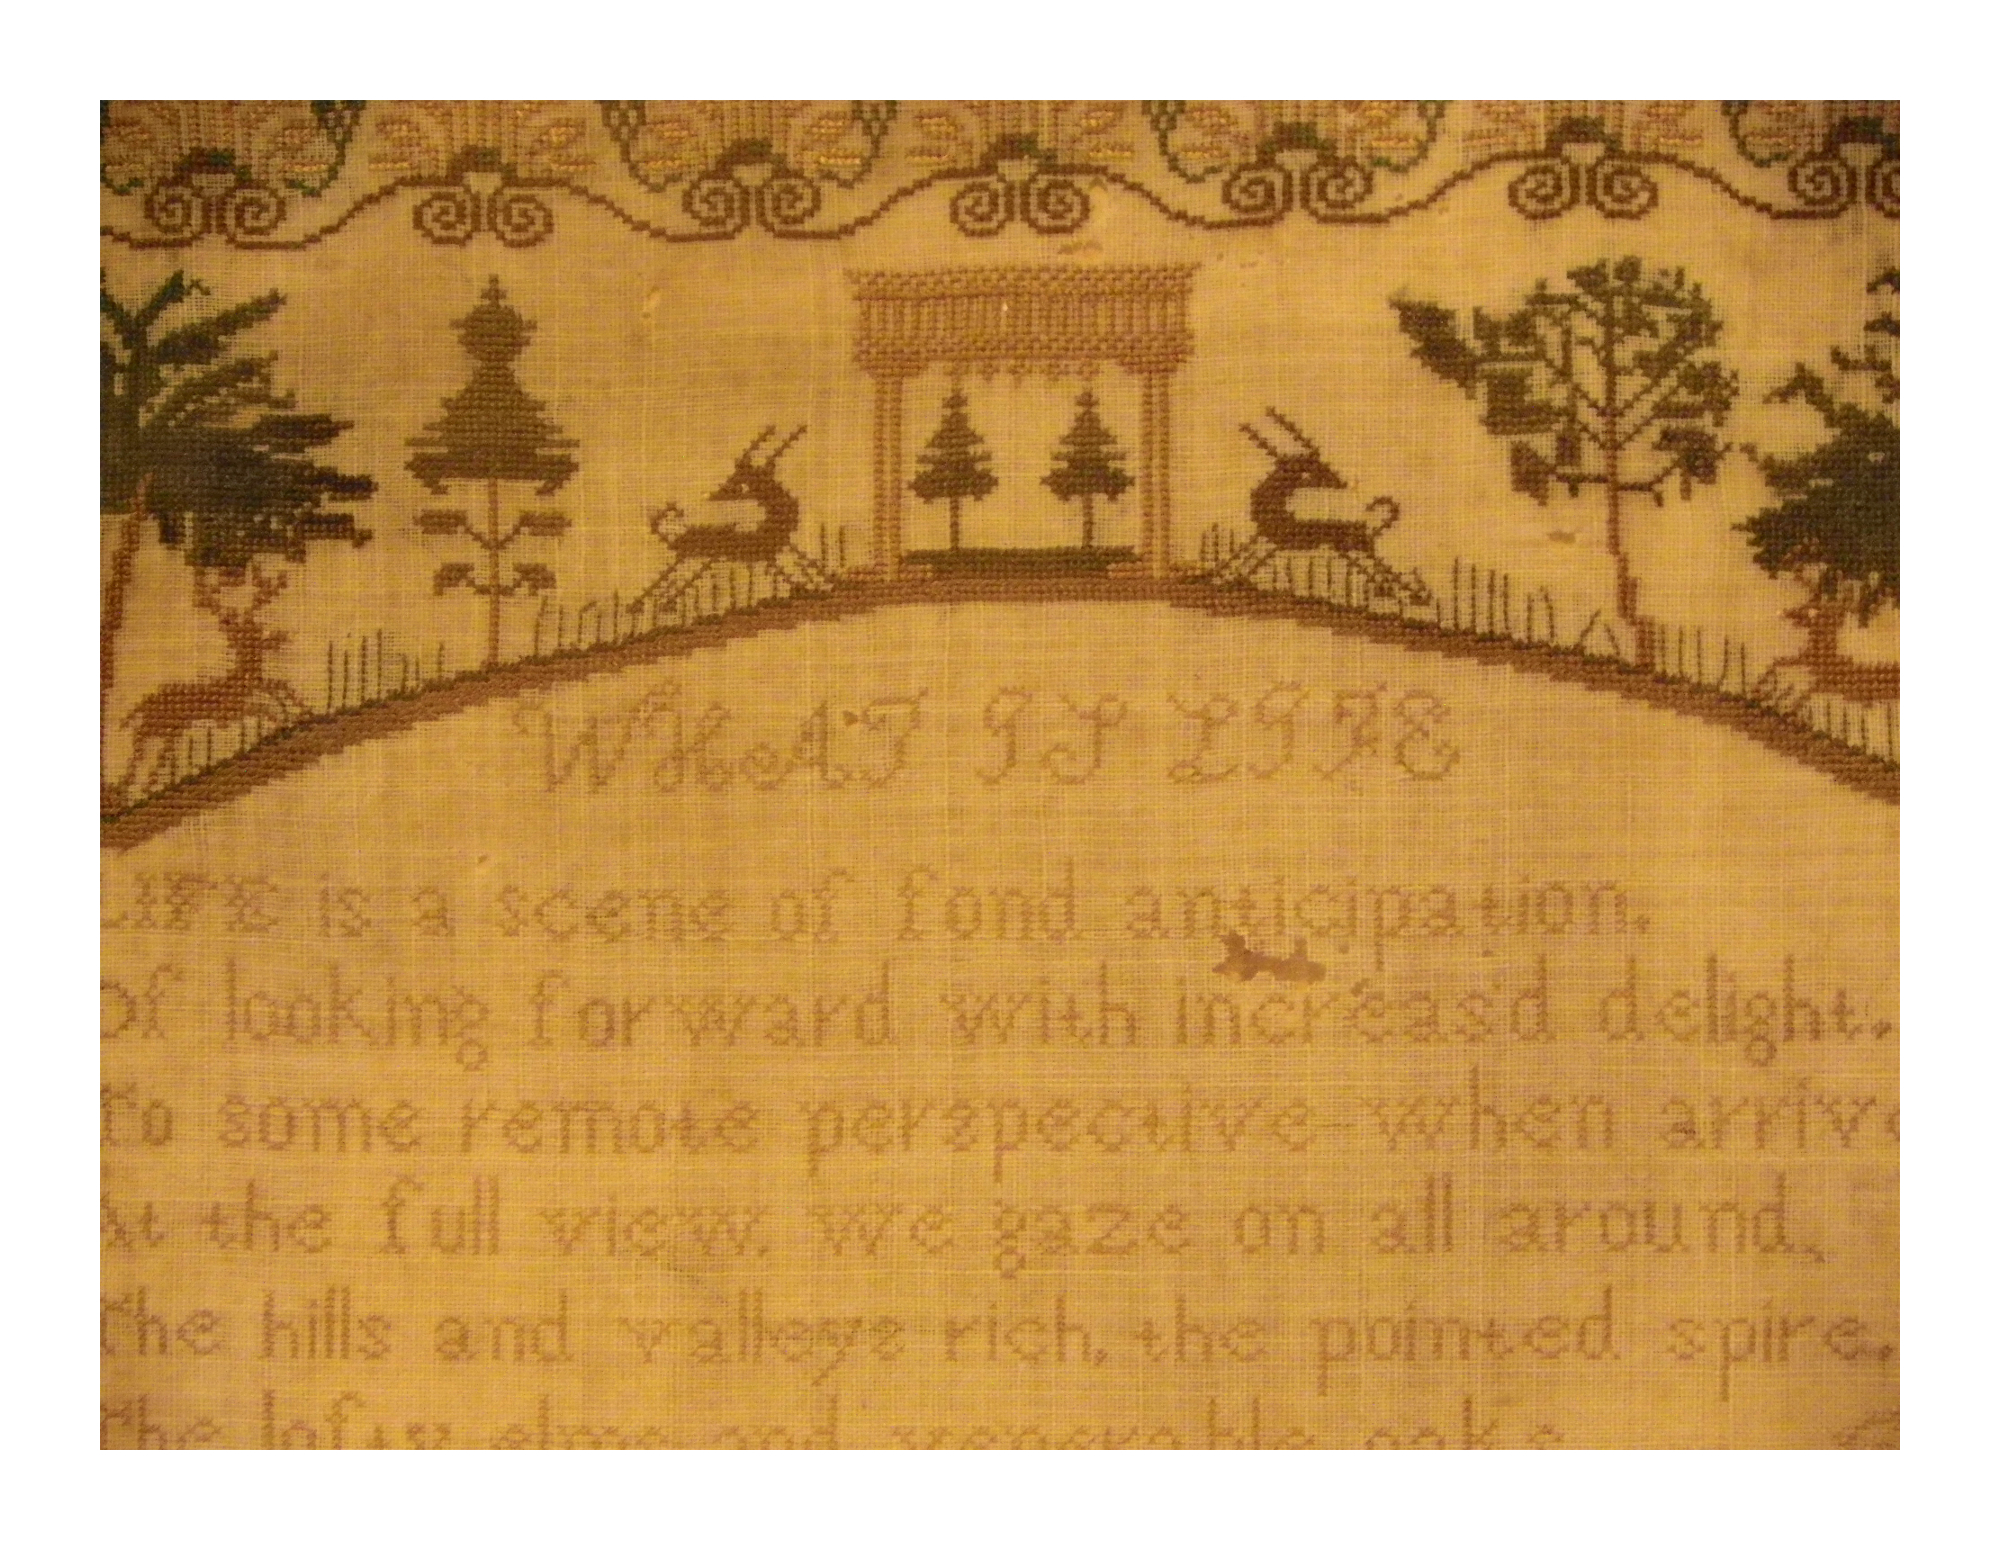 WHAT IS LIFE
LIFE is a scene of fond anticipation,
Of looking forward with increas'd delight,
To some remote perspective—when arriv
At the full view, we gaze on all around,
The hills and valleys rich, the pointed spire,
The lofty elms and venerable oaks